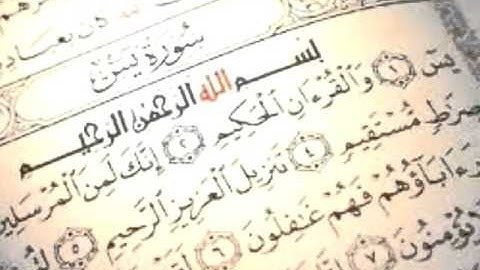 سُورَةُ يسٓ
بِسْمِ اللَّهِ الرَّحْمَٰنِ الرَّحِيمِ
يسٓ ١ وَالْقُرْءَانِ الْحَكِيمِ ٢ إِنَّكَ لَمِنَ الْمُرْسَلِينَ
صِرَٰطٍ مُّسْتَقِيمٍ ٤ تَنزِيلَ الْعَزِيزِ الرَّحِيمِ ٥
ءَابَآؤُهُمْ فَهُمْ غَٰفِلُونَ ٦
يُؤْمِنُونَ ٧